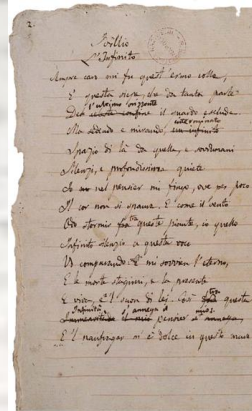 2.
Idillio
L'Infinito
Sempre caro mi fu quest'ermo colle,
E questa siepe, che da tanta parte
l'ultimo orizzonte
Del confine il guardo esclude.
interminato
Ma sedendo e mirando, un infinito
Spazio di là da quella, e sovrumani
Silenzi, e profondissima quiete
Io nel pensier mi fingo, ove per poco
Il cor non si spaura. E come il vento
Odo stormir fra queste piante, io quello
Infinito silenzio a questa voce
Vo comparando: E mi sovvien l'eterno,
E le morte stagioni, e la presente
E viva, e 'l suon di lei. Così tra questa
Infinità s'annega il
Immensitade il mio pensier s'annega,
E 'l naufragar m'è dolce in questo mare.